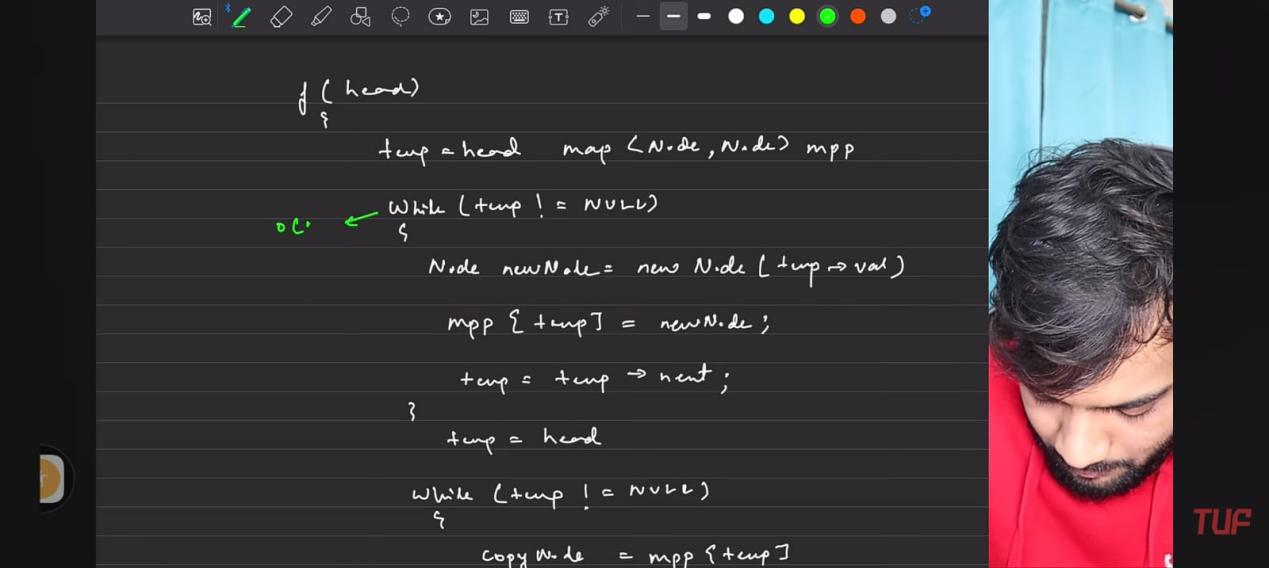 f(head)
{
temp = head map <Node, Node> mpp
while (temp != NULL)
O(
{
Node newNode = new Node (temp → val)
mpp [temp] = newNode;
temp = temp → next;
}
temp = head
while (temp != NULL)
{
copyNode = mpp [temp]
TUF